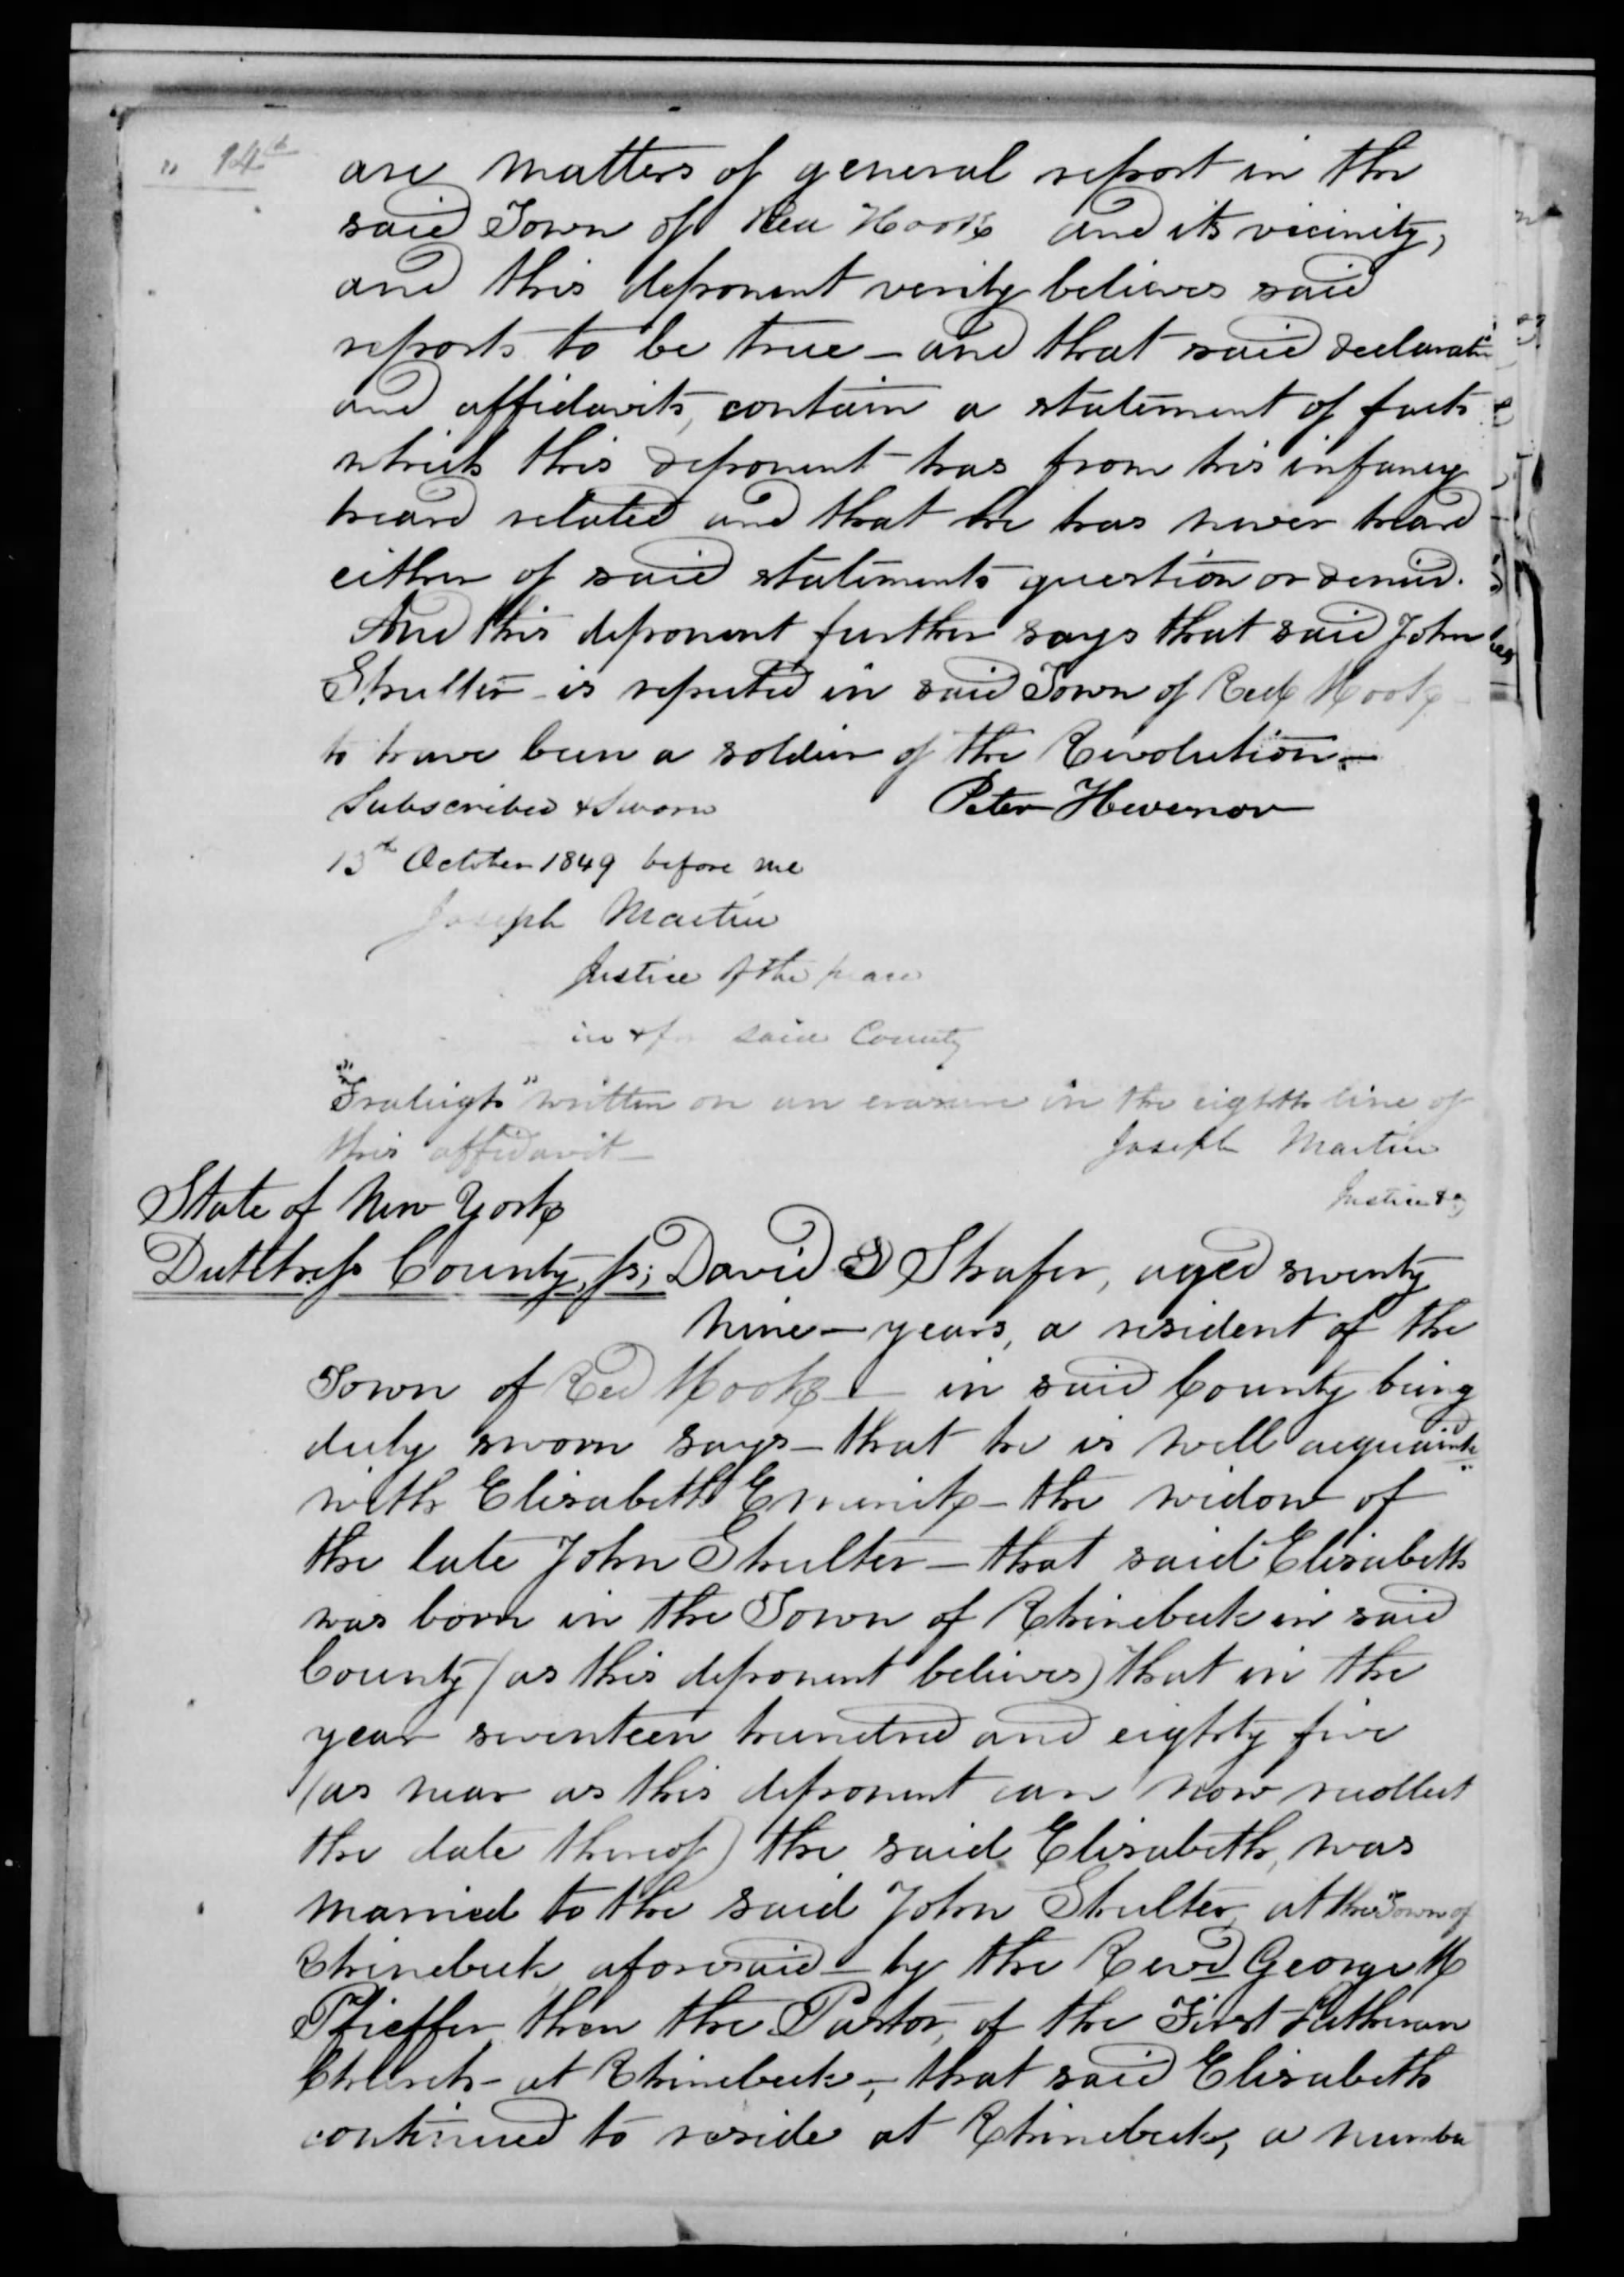 " 14th
are matters of general report in the
said Town of Red Hook and its vicinity,
and this deponent verily believes said
reports to be true – and that said declaratn
and affidavits, contain a statement of facts
which this deponent has from his infancy
heard related and that he has never heard
either of said statements question or denied.
And this deponent further says that said John
Shulter is reputed in said Town of Red Hook
to have been a soldier of the Revolution –
Subscribed & Sworn Peter Hevenor
13th October 1849 before me
Joseph Martin
Justice of the peace
in & for said County
"Fraleigh" written on an erasure in the eighth line of
this affidavit – Joseph Martin
Justice &c
State of New York
Dutchess County, ss; David D Shafer, aged seventy
nine – years, a resident of the
Town of Red Hook – in said County being
duly sworn says – that he is well acquainted
with Elisabeth – the widow of
the late John Shulter – that said Elisabeth
was born in the Town of Rhinebeck in said
County (as this deponent believes) that in the
year seventeen hundred and eighty five
(as near as this deponent can now recollect
the date thereof) the said Elisabeth, was
married to the said John Shulter, at the Town of
Rhinebeck aforesaid – by the Revd George M
Pfieffer then the Pastor, of the First Lutheran
Church – at Rhinebeck –, that said Elisabeth
continued to reside at Rhinebeck, a number